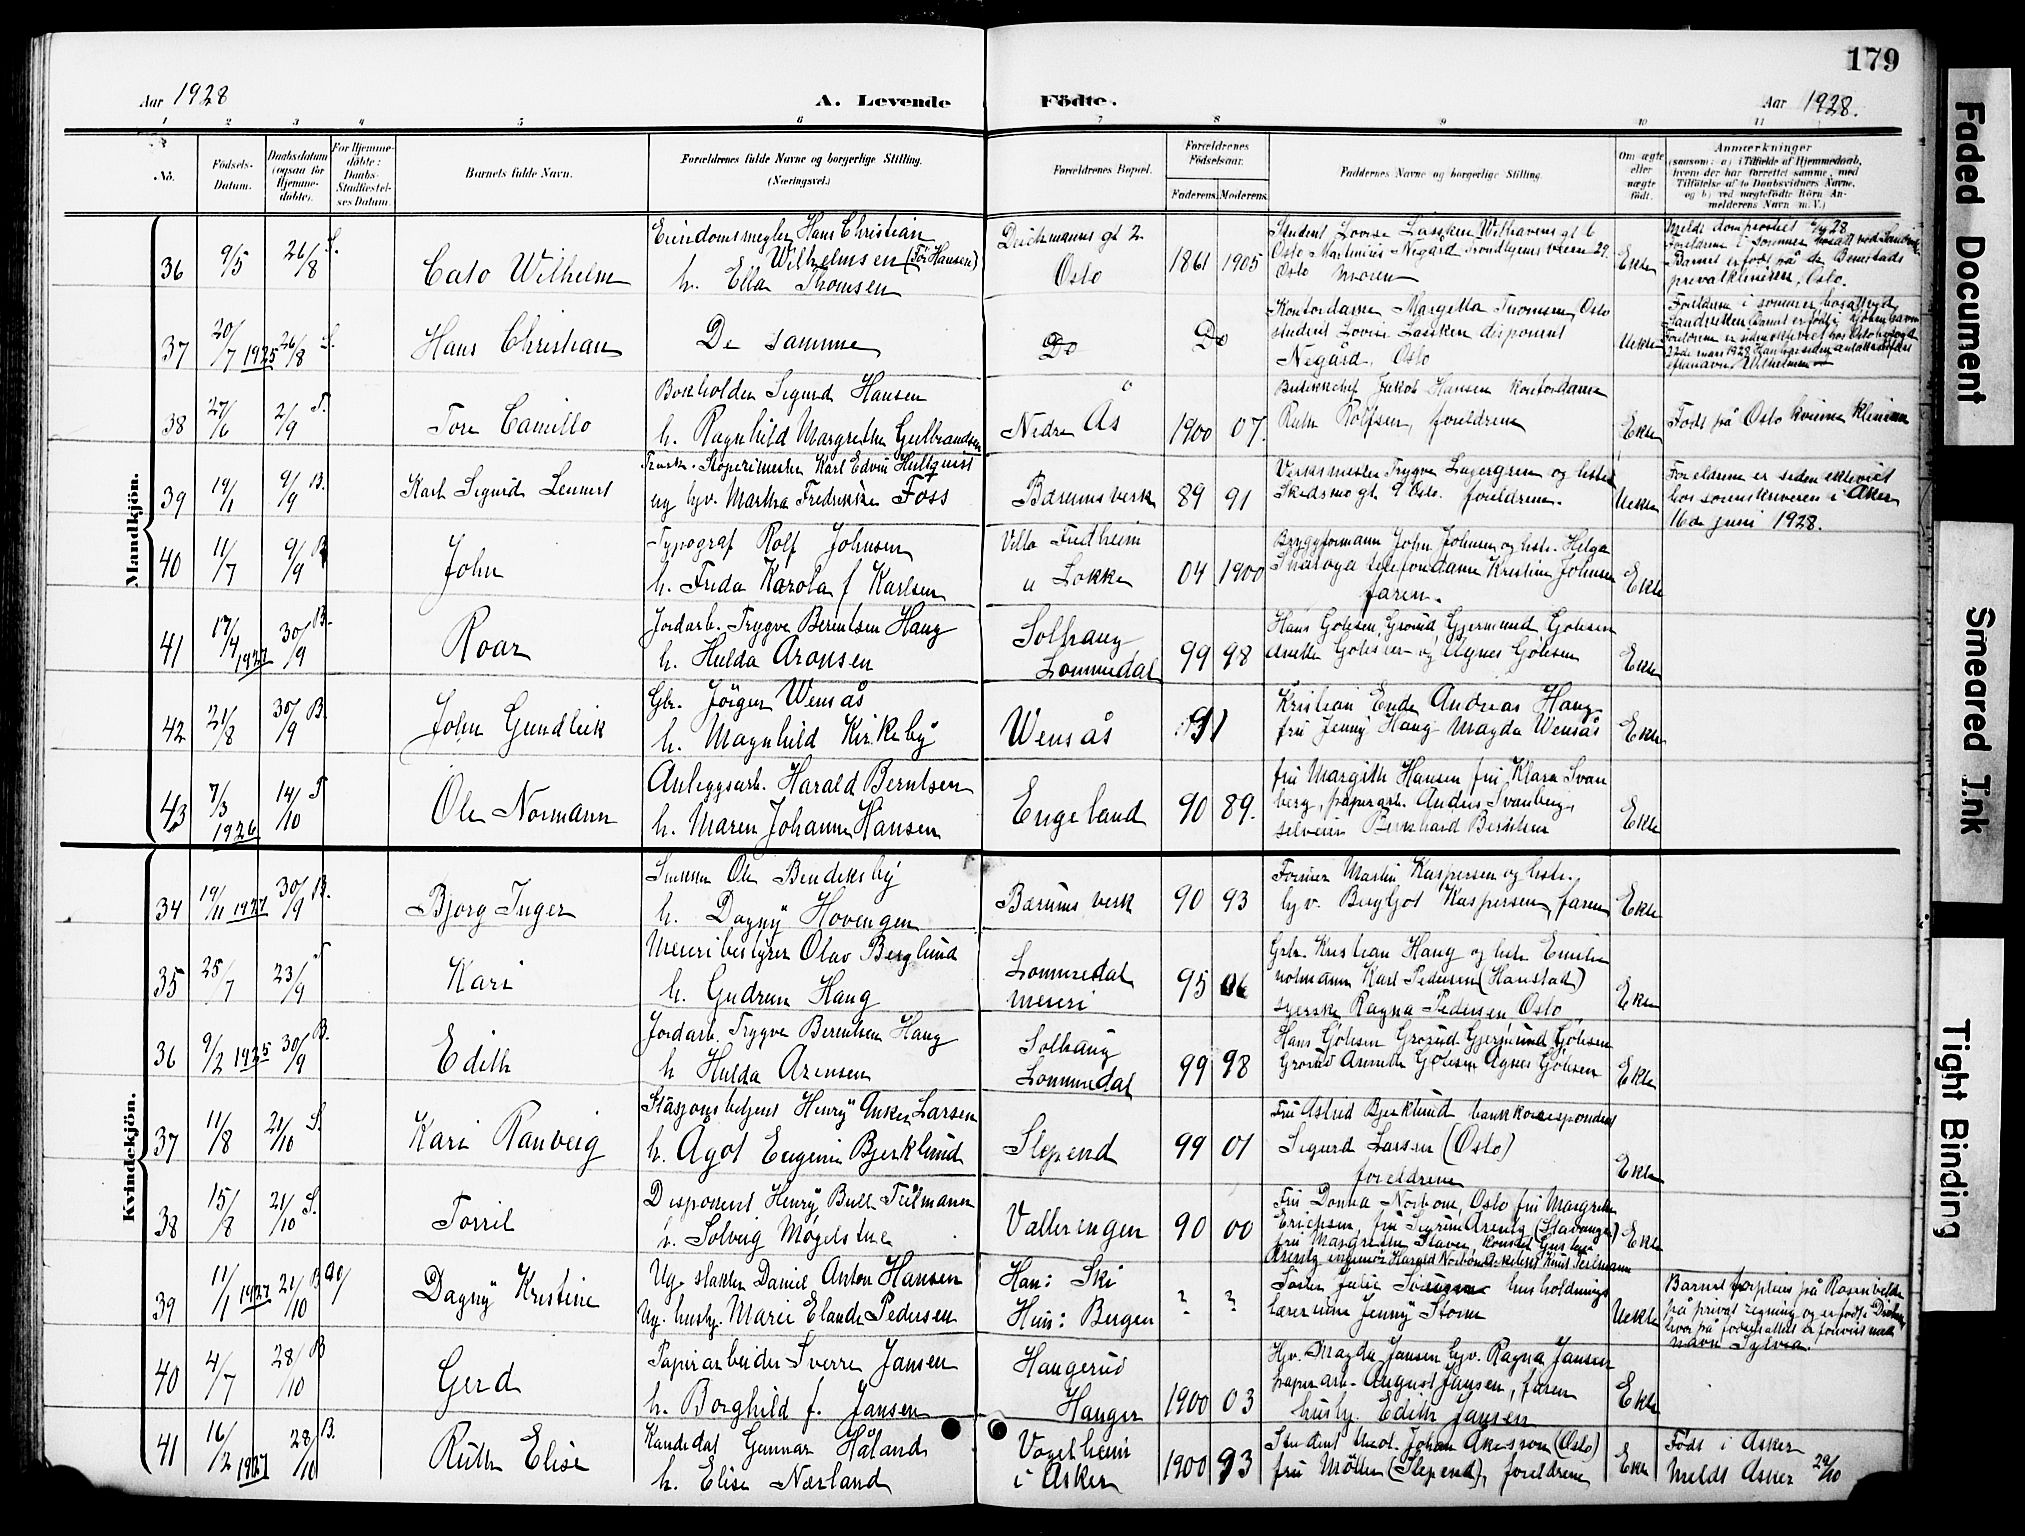 179
Aar 1928
A. Levende
Födte.
Aar 1928.
1 2 3 4 5 6 7 8 9 10 11
No.
Födsels-
Datum.
Daabsdatum
(ogsaa for
Hjemme-
døbte).
For Hjemme-
døbte:
Daabs-
Stadfæstel-
ses Datum.
Barnets fulde Navn.
Forældrenes fulde Navne og borgerlige Stilling.
(Næringsvei.)
Forældrenes Bopæl.
Forældrenes
Fødselsaar.
Faderens. Moderens.
Faddernes Navne og borgerlige Stilling.
Om ægte
eller
uægte
født.
Anmærkninger
(saasom: a) i Tilfælde af Hjemmedaab,
hvem der har forrettet samme, med
Tilføielse af to Daabsvidners Navne,
og b) ved uægtefødte Börn An-
melderens Navn m. V.)
Mandkjön.
36 9/5 26/8 S.
Cato Wilhelm
Eiendomsmegler Hans Christian
Wilhelmsen (Før Hansen)
h. Ella Thomsen
Deichmanns gt 2
Oslo
1861 1905
Student Lovise Lassken Wilhavens gt 6
Oslo Martinius Negård Trondhjems veien 29.
Oslo moren
Ekte
Foreldrene i sommer bosatt ved Sandvik
Barnet er født på
privatklinikken, Oslo.
37 20/7 1925 26/8 S.
Hans Christian
De samme
Do
Do
Kontordame Margetta Thomsen, Oslo
student Lovise Lassken disponent
Negård. Oslo
Uekte
Foreldrene i sommer bosatt ved
Sandvikken. Barnet er født i Kjøbenhavn
22de mars 1928
38 27/6 2/9 T.
Tore Camillo
Bokholder Sigurd Hansen
h. Ragnhild Margrethe Gulbrandsen
Nedre Ås
1900 07.
Butikkchef Jakob Hansen kontordame
Ruth Rolfsen, foreldrene
Ekte
Født på Oslo kvinne klinikk
39 19/1 9/9 B.
Karl Sigurd Lennert
Frask. Støperimester Karl Edvin Hultquist
ug hjv. Martha Fredrikke Foss
Bærums verk
89 91
Verksmester Trygve Lagergren og hstr
Skedsmogt. 9 Oslo. foreldrene.
Uekte
Foreldrene er siden ekteviet
hos sorenskriveren i Aker
16de juni 1928.
40 11/7 9/9 B
John
Typograf Rolf Johnsen
h. Frida Karola f Karlsen
Villa Fredheim
u Løkke
04 1900
Bryggeformann John Johnsen og hstr. Helga
telefondame Kristine Johnsen
faren.
Ekte
41 17/4 1927 30/9 B.
Roar
Jordarb. Trygve Berentsen Haug
h. Hulda Aronsen
Solhaug
Lommedal
99 98
Hans Golisen, Grorud, Gjermund Golisen
Anette Golisen og Agnes Golisen
Ekte
42 21/8 30/9 B.
John Gundleik
Gbr. Jörgen Wensås
h. Magnhild Kirkeby
Wensås
Kristian Ende Andreas Haug
fru Jenny Haug Magda Wensås
Ekte
43 7/3 1926 14/10 T
Ole Normann
Anleggsarb. Harald Berntsen
h. Maren Johanne Hansen
Engeland
90 89.
fru Margith Hansen fru Klara Svan
berg, papirarb. Anders Svanberg,
selveier Bernhard Berntsen
Ekte
Kvindekjön.
34 19/11 1927 30/9 B.
Bjorg Inger
Ole Bendiksby
h. Dagny Hovengen
Bærums verk
90 93
Former Martin Kaspersen og hstr.
hjv. Bergljot Kaspersen, faren
Ekte
35 25/7 23/9 T
Kari
Meieribestyrer Olav Berglund
h. Gudrun Haug
Lommedal
meieri
95 06
Gbr. Kristian Haug og hstr Emilie
Karl Pedersen (Hanstad)
syerske Ragna Pedersen Oslo
Ekte
36 9/2 1925 30/9 B.
Edith
Jordarb. Trygve Berentsen Haug
h Hulda Aronsen
Solhaug
Lommedal
99 98
Hans Golisen Grorud Gjermund Golisen
Grorud Annette Golisen Agnes Golisen
Ekte
37 11/8 21/10 S.
Kari Ranveig
Stasjonsbetjent Henry Anker Larsen
h. Ågot Eugenie Bjerklund
Slepend
99 01
Fru Astrid Bjerklund bankkorrespondent
Sigurd Larsen (Oslo)
foreldrene
Ekte
38 15/8 21/10 S.
Torril
Disponent Henry Bull Teilmann
h. Solveig Møgelstue
Valleringen
90 00
Fru Donna Norbom, Oslo fru Margrethe
Erichsen, fru Sigrun Arentz (Stavanger)
fru Margrethe Staver konsul Gustav
Arentz ingeniør Harald Norbom Arkitekt Knut Teilmann
Ekte
39 11/1 1927 21/10 B
Dagny Kristine
Ug. slakter Daniel Anton Hansen
Ug. hushj. Marie Elande Pedersen
Han: Ski
Hun: Bergen
? ?
Søster Julie husholdnings
lærerinne Jenny Storm
Uekte
Barnet forpleies på Rosenvilde
på privat regning og er født i
navn Sylvia.
40 4/7 28/10 B
Gerd
Papirarbeider Sverre Jansen
h. Borghild f. Jansen
Haugerud
Hauger
1900 03
Hjv. Magda Jansen hjv. Ragna Jansen
papirarb. August Jansen, faren
hushj. Edith Jansen
Ekte
41 16/2 1927 28/10 B.
Ruth Elise
Kandidat Gunnar Håland
h. Elise Nærland
Vogelheim
i Asker
1900 93
Student med. Johan Åkesson (Oslo)
fru Møller (Slepend), foreldrene
Ekte
Født i Asker
Meldt Asker 29/10
Faded Document
Smeared Ink
Tight Binding